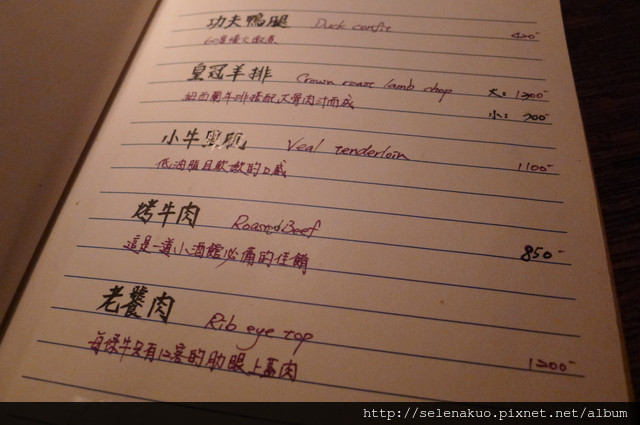 功夫鴨腿 Duck confit 420-
60度慢火微煮
皇冠羊排 Crown roast lamb chop 大: 1300-
紐西蘭羊排搭配大骨肉汁而成 小: 700-
小牛里肌 Veal tenderloin 1100-
低油脂且軟嫩的口感
烤牛肉 Roasted Beef 850-
這是一道小酒館必備的佳餚
老饕肉 Rib eye top 1200-
每條牛只有12客的肋眼上蓋肉
http://selenakuo.pixnet.net/album